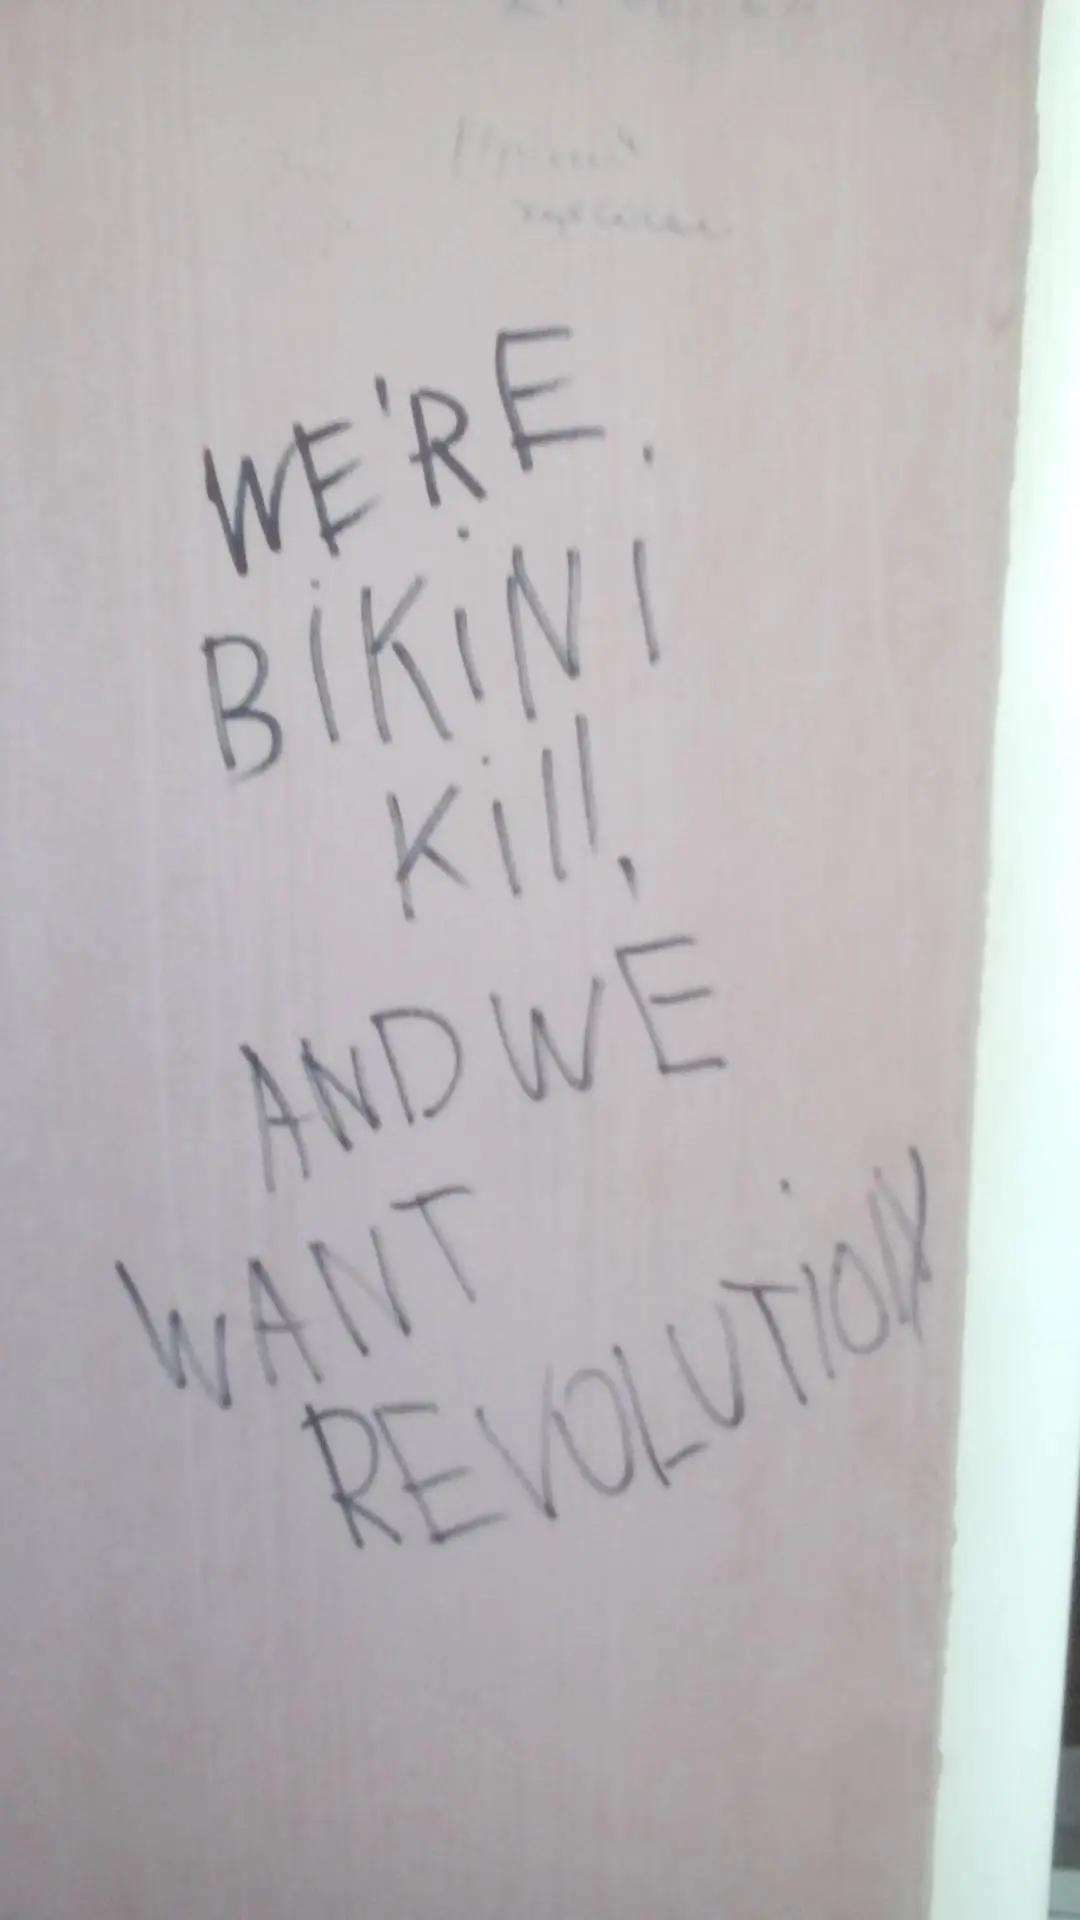 WE'RE
BiKiNI
Kill,
AND WE
WANT
REVOLUTiON